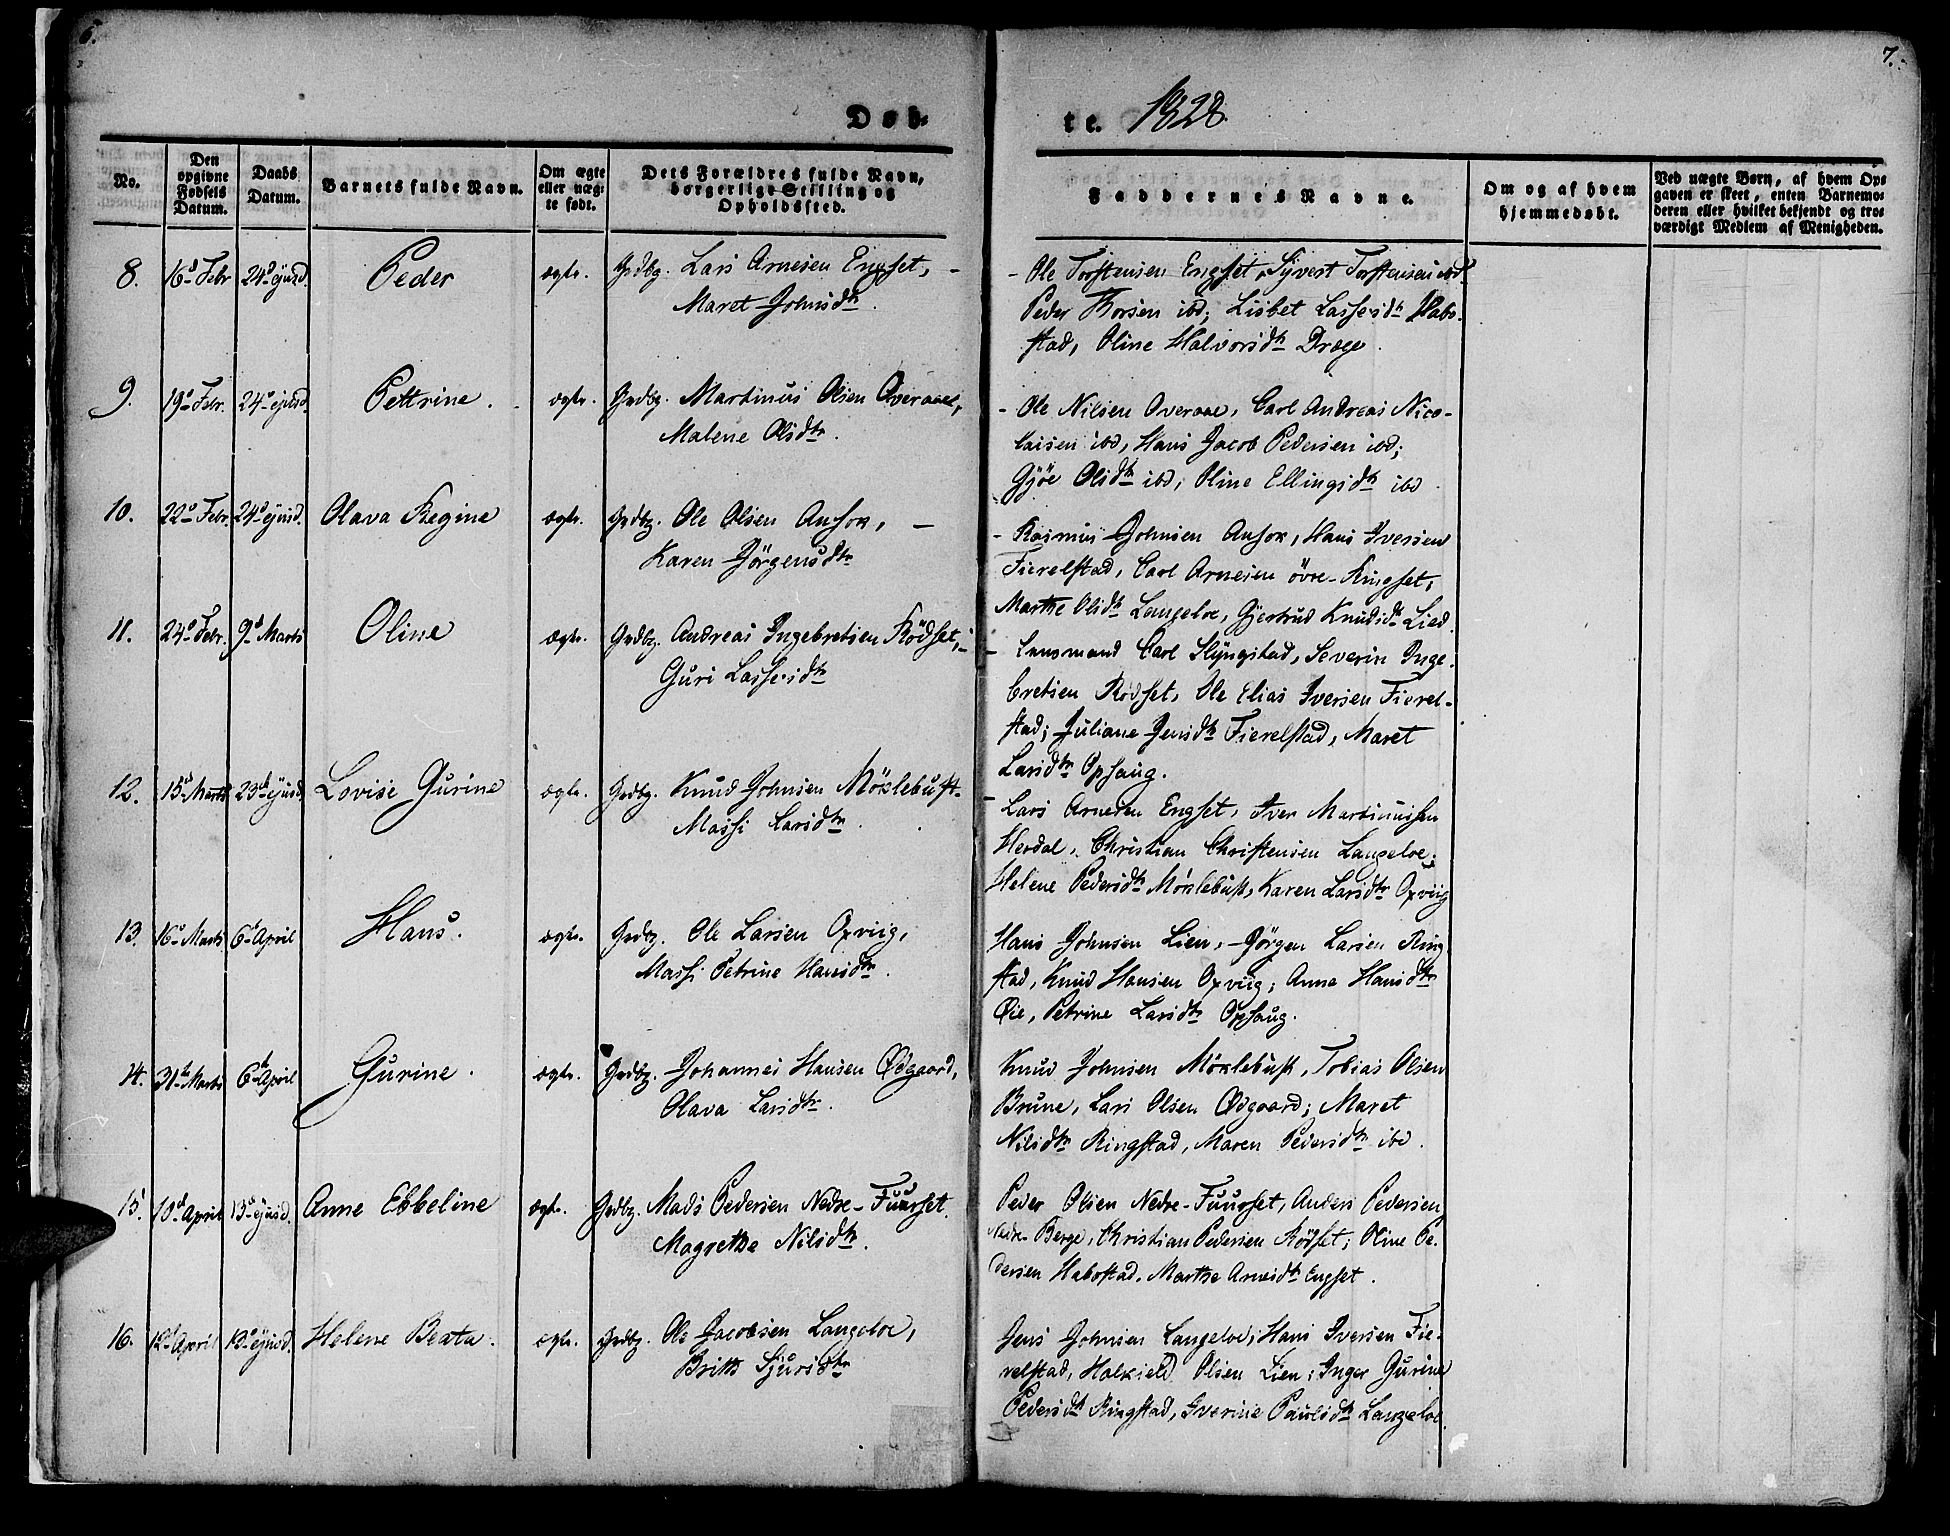 6.
7.
Døb-
te. 1828.
No.
Den opgivne Fødsels Datum.
Daabs Datum.
Barnets fulde Navn.
Om ægte eller uæg-te født.
Dets Forældres fulde Navn, borgerlige Stilling og Opholdssted.
Faddernes Navne.
Om og af hvem hjemmedøbt.
Ved uægte Børn, af hvem Op-gaven er skeet, enten Barnemo-deren eller hvilket bekjendt og tro-værdigt Medlem af Menigheden.
8. 16d Febr 24d ejusd. Peder ægte. Grdbg. Lars Arnesen Engset, -
Maret Johnsdtr.
- Ole Torstensen Engset, Syvert Torstensen ibd.
Peder Thorsen ibd; Lisbet Lassesdtr Habo-
stad, Oline Halvorsdtr Drage.
9. 19d Febr. 24d ejusd. Pettrine. ægte. Grdbg. Martinus Olsen Overaae,
Malene Olsdtr.
- Ole Nilsen Overaae, Carl Andreas Nico-
laisen ibd, Hans Jacob Pedersen ibd;
Gjøe Olsdtr ibd, Oline Ellingsdtr ibd.
10. 22d Febr. 24d ejusd. Olava Regine ægte. Grdbg. Ole Olsen Ansok, -
Karen Jörgensdtr
- Rasmus Johnsen Ansok, Hans Iversen
Fierelstad, Carl Arnesen övre-Ringset,
Marthe Olsdtr Langeloe, Gjertrud Knudsdtr Lied.
11. 24d Febr. 9d Marts Oline ægte. Grdbg. Andreas Ingebretsen Rödset, -
Guri Lassesdtr
- Lensmand Carl Slyngstad, Severin Inge-
bretsen Rödset, Ole Elias Iversen Fierel-
stad; Juliane Jensdtr Fierelstad, Maret
Larsdtr Ophaug.
12. 15d Marts 23d ejusd. Lovise Gurine ægte. Grdbg. Knud Johnsen Möxlebust-
Massi Larsdtr.
- Lars Arnesen Engset, Iver Martinussen
Herdal, Christian Christensen Langeloe;
Helene Pedersdtr Möxlebust, Karen Larsdtr Oxviig
13. 16d Marts 6d April Hans. ægte. Grdbg. Ole Larsen Oxviig,
Massi Petrine Hansdtr.
Hans Johnsen Lien, Jörgen Larsen Ring-
stad, Knud Hansen Oxviig; Anne Hansdtr
Øie, Petrine Larsdtr Ophaug.
14. 31te Marts 6d April Gurine. ægte. Grdbg. Johannes Hansen Ødgaard,
Olava Larsdtr.
Knud Johnsen Möxlebust, Tobias Olsen
Brune, Lars Olsen Ødgaard; Maret
Nilsdtr Ringstad, Maren Pedersdtr ibd.
15. 10d April 13d ejusd. Anne Ebbeline ægte. Grdbg. Mads Pedersen Nedre-Fuurset.
Magrethe Nilsdtr.
Peder Olsen Nedre-Fuurset, Anders Pedersen
Nedre-Berge, Christian Pedersen Rödset; Oline Pe-
dersen Habostad, Marthe Arnesdtr Engset.
16. 12d April 13d ejusd. Helene Beata. ægte. Grdbg. Ole Jacobsen Langeloe,
Brith Sjursdtr
Jens Johnsen Langeloe, Hans Iversen Fie-
relstad, Halkield Olsen Lien; Inger Gurine
Pedersdtr Ringstad, Iverine Paulsdtr Langeloe.